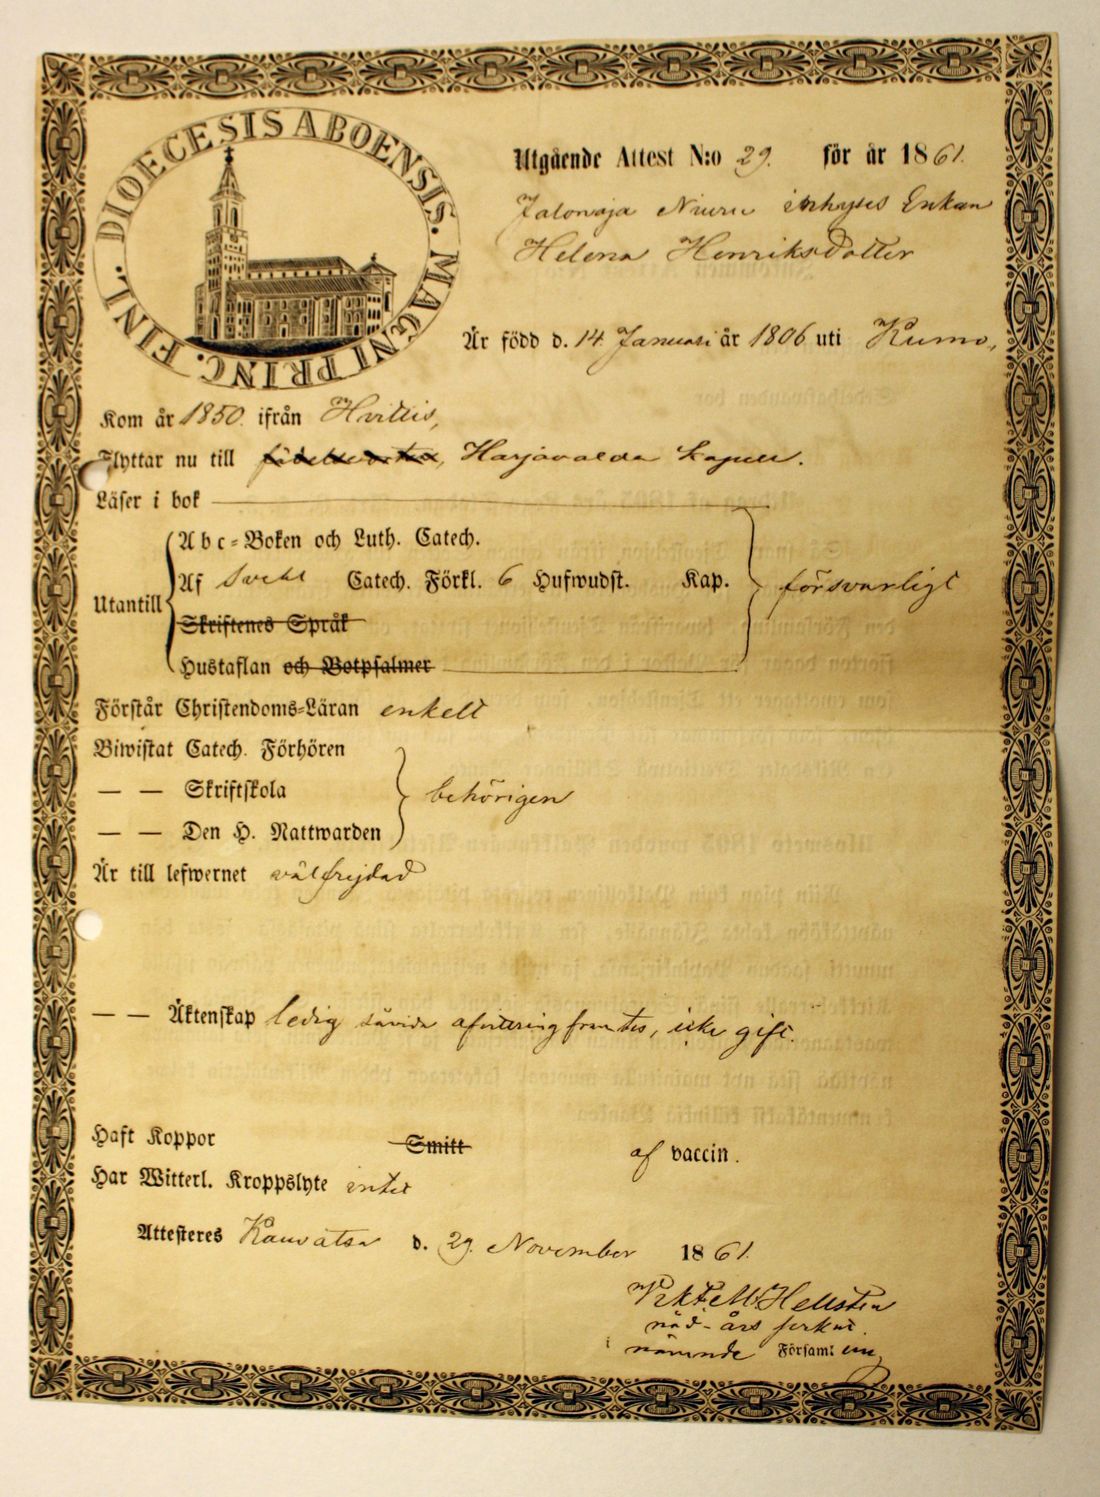 DIOECESIS ABOENSIS. MAGNI PRINC. FINL.
Utgående Attest N:o 29. för år 1861.
Jalonoja Niuru inhyses Enkan
Helena Henriksdotter
Är född d. 14 Januari år 1806 uti Kumo,
Kom år 1850. ifrån Hvittis,
Flyttar nu till Harjavalda kapell.
Läser i bok
Abc-Boken och Luth. Catech.
Af Svebe Catech. Förkl. 6 Hufwudst. Kap. försvarligt
Utantill
Skriftenes Språk
Hustaflan och Botpsalmer
Förstår Christendoms-Läran enkelt
Biwistat Catech. Förhören
— — Skriftskola behörigen
— — Den H. Nattwarden
Är till lefwernet välfrejdad
— — Äktenskap ledig såvida afvittring framtes, icke gift.
Haft Koppor Smitt af vaccin.
Har Witterl. Kroppslyte intet
Attesteres Kauvatsa d. 29. November 1861.
Hellsten
nåd-års
i nämnde Församl